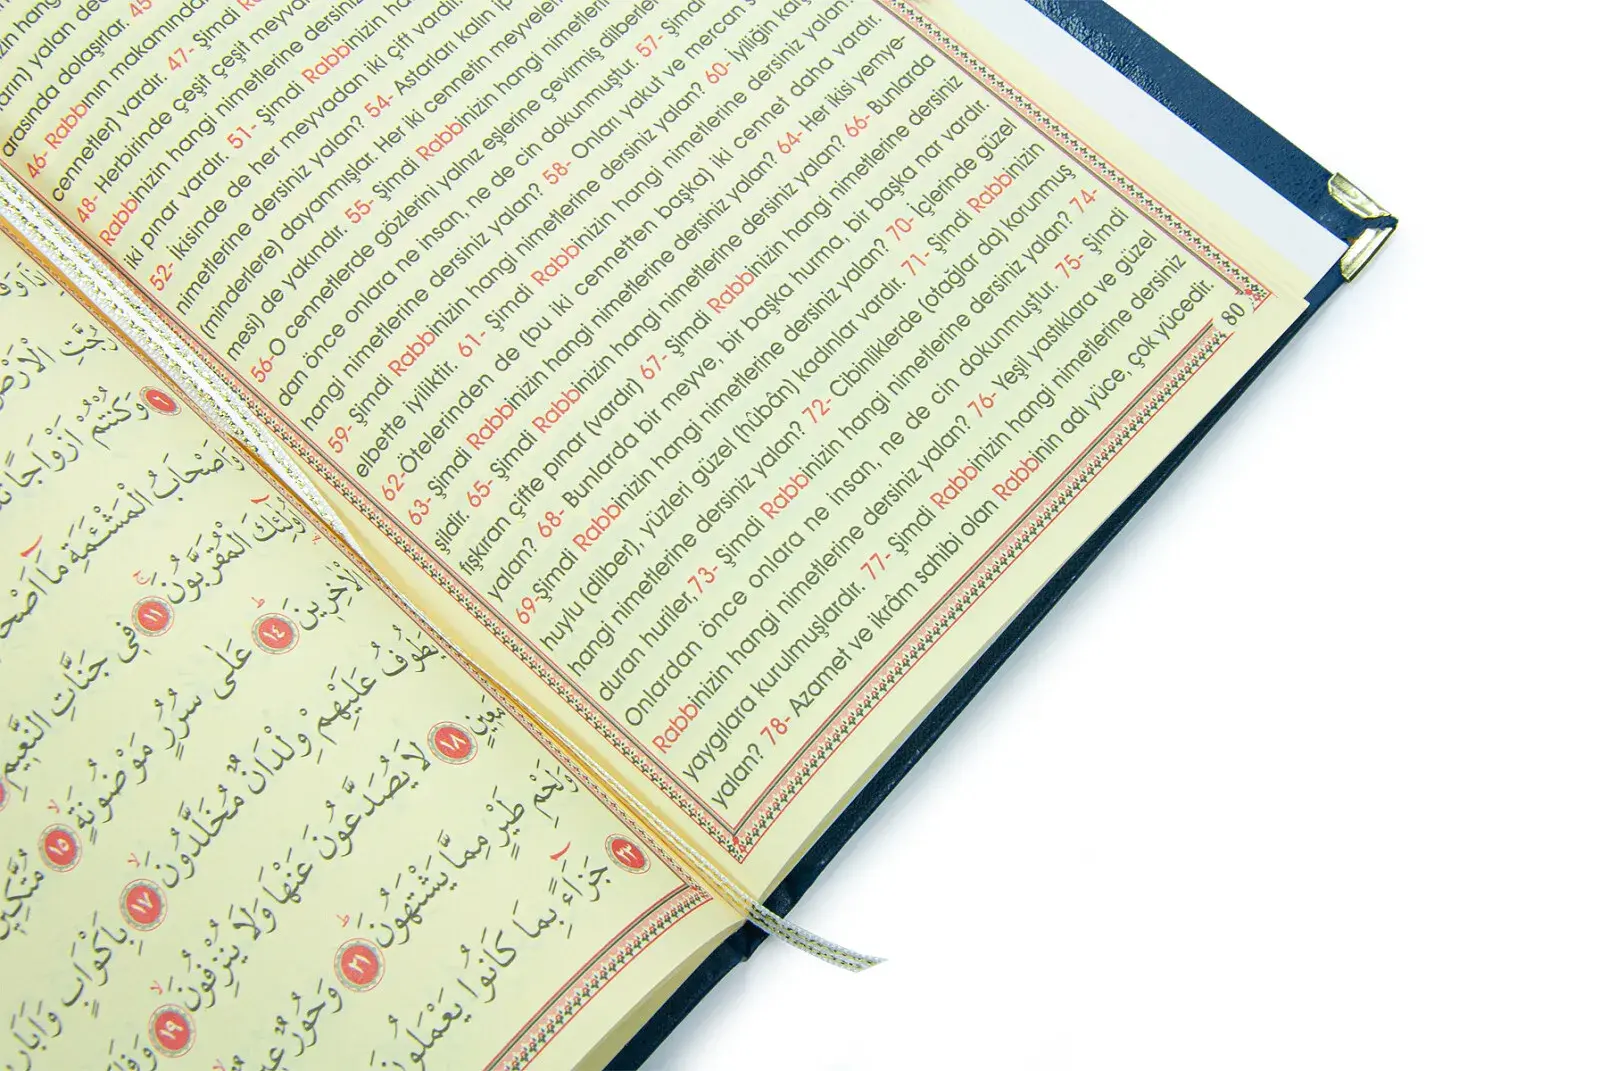 arasında dolaşırlar. 45-
46- Rabbinin makamından
cennetler) vardır. 47- Şimdi
48- Herbirinde çeşit çeşit
Rabbinizin hangi nimetlerine dersiniz
iki pınar vardır. 51- Şimdi Rabbinizin
52- İkisinde de her meyvadan iki çift vardır.
nimetlerine dersiniz yalan? 54- Astarları kalın
(minderlere) dayanmışlar. Her iki cennetin
mesi) de yakındır. 55- Şimdi Rabbinizin hangi
56-O cennetlerde gözlerini yalnız eşlerine çevirmiş
dan önce onlara ne insan, ne de cin dokunmuştur. 57- Şimdi
hangi nimetlerine dersiniz yalan? 58- Onları yakut ve mercan
59- Şimdi Rabbinizin hangi nimetlerine dersiniz yalan? 60- İyiliğin
elbette iyiliktir. 61- Şimdi Rabbinizin hangi nimetlerine dersiniz yalan?
62-Ötelerinden de (bu iki cennetten başka) iki cennet daha vardır.
63- Şimdi Rabbinizin hangi nimetlerine dersiniz yalan? 64- Her ikisi yemye-
şildir. 65- Şimdi Rabbinizin hangi nimetlerine dersiniz yalan? 66- Bunlarda
fışkıran çifte pınar (vardır) 67- Şimdi Rabbinizin hangi nimetlerine dersiniz
yalan? 68- Bunlarda bir meyve, bir başka hurma, bir başka nar vardır.
69-Şimdi Rabbinizin hangi nimetlerine dersiniz yalan? 70- İçerinde güzel
huylu (dilber), yüzleri güzel (hûbân) kadınlar vardır. 71- Şimdi Rabbinizin
hangi nimetlerine dersiniz yalan? 72- Cibinliklerde (otağlar da) korunmuş
duran huriler, 73- Şimdi Rabbinizin hangi nimetlerine dersiniz yalan? 74-
Onlardan önce onlara ne insan, ne de cin dokunmuştur. 75- Şimdi
Rabbinizin hangi nimetlerine dersiniz yalan? 76- Yeşil yastıklara ve güzel
yaygılara kurulmuşlardır. 77- Şimdi Rabbinizin hangi nimetlerine dersiniz
yalan? 78- Azamet ve ikrâm sahibi olan Rabbinin adı yüce, çok yücedir.
80
رُجَّتِ الْاَرْضُ
٦ وَكُنْتُمْ اَزْوَاجًا
وَاَصْحَابُ الْمَشْـَٔمَةِ مَٓا
اُو۬لٰٓئِكَ الْمُقَرَّبُونَ ١١ ف۪ي جَنَّاتِ النَّع۪يمِ
الْاٰخِر۪ينَ ١٤ عَلٰى سُرُرٍ مَوْضُونَةٍ ١٥
يَطُوفُ عَلَيْهِمْ وِلْدَانٌ مُخَلَّدُونَ ١٧ بِاَكْوَابٍ
مَع۪ينٍ ١٨ لَا يُصَدَّعُونَ عَنْهَا وَلَا يُنْزِفُونَ ١٩
وَلَحْمِ طَيْرٍ مِمَّا يَشْتَهُونَ ٢١ وَحُورٌ
٢٣ جَزَٓاءً بِمَا كَانُوا يَعْمَلُونَ